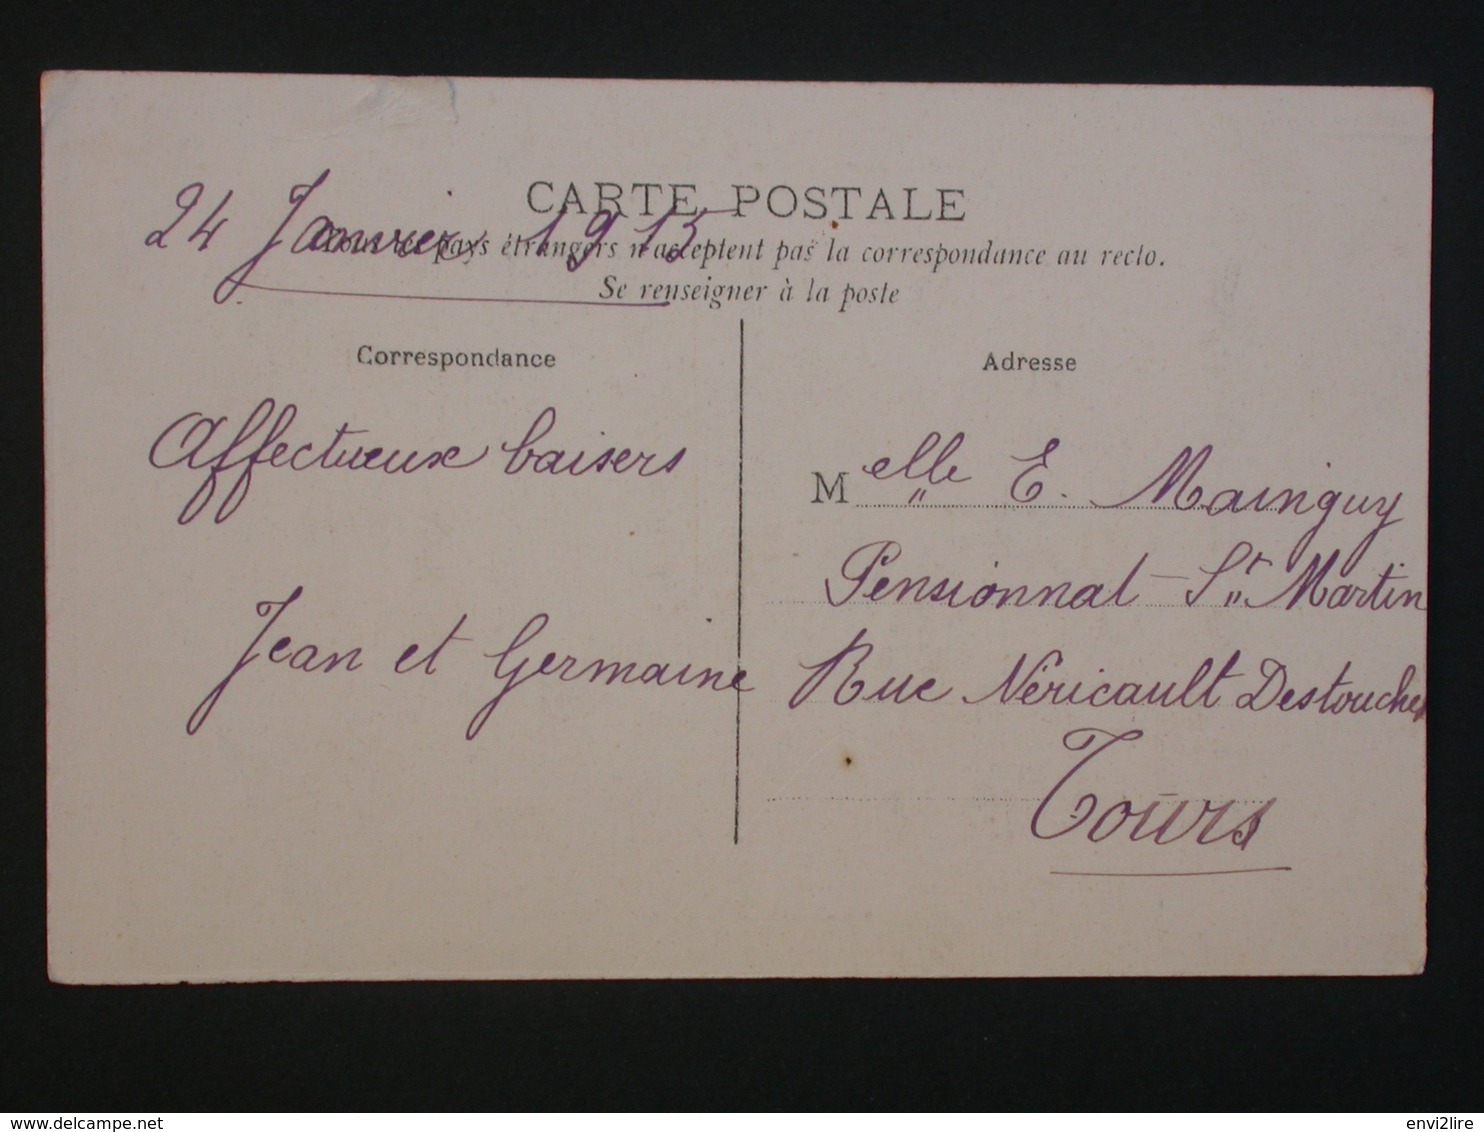 CARTE POSTALE
24 Janvier 1915
Tous les pays étrangers n'acceptent pas la correspondance au recto.
Se renseigner à la poste
Correspondance
Affectueux baisers
Jean et Germaine
Adresse
Melle E. Mainguy
Pensionnat St Martin
Rue Néricault Destouches
Tours
delcampe.net
envi2lire